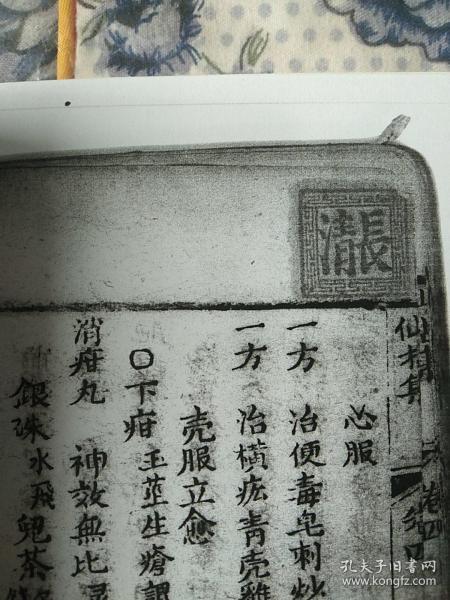 必服
一方 治便毒皂刺炒
一方 治橫痃青壳雞
壳服立愈
〇下疳 玉莖生瘡謂
消疳丸 神效無比
銀硃水飛兒茶
孔夫子旧书网
www.kongfz.com